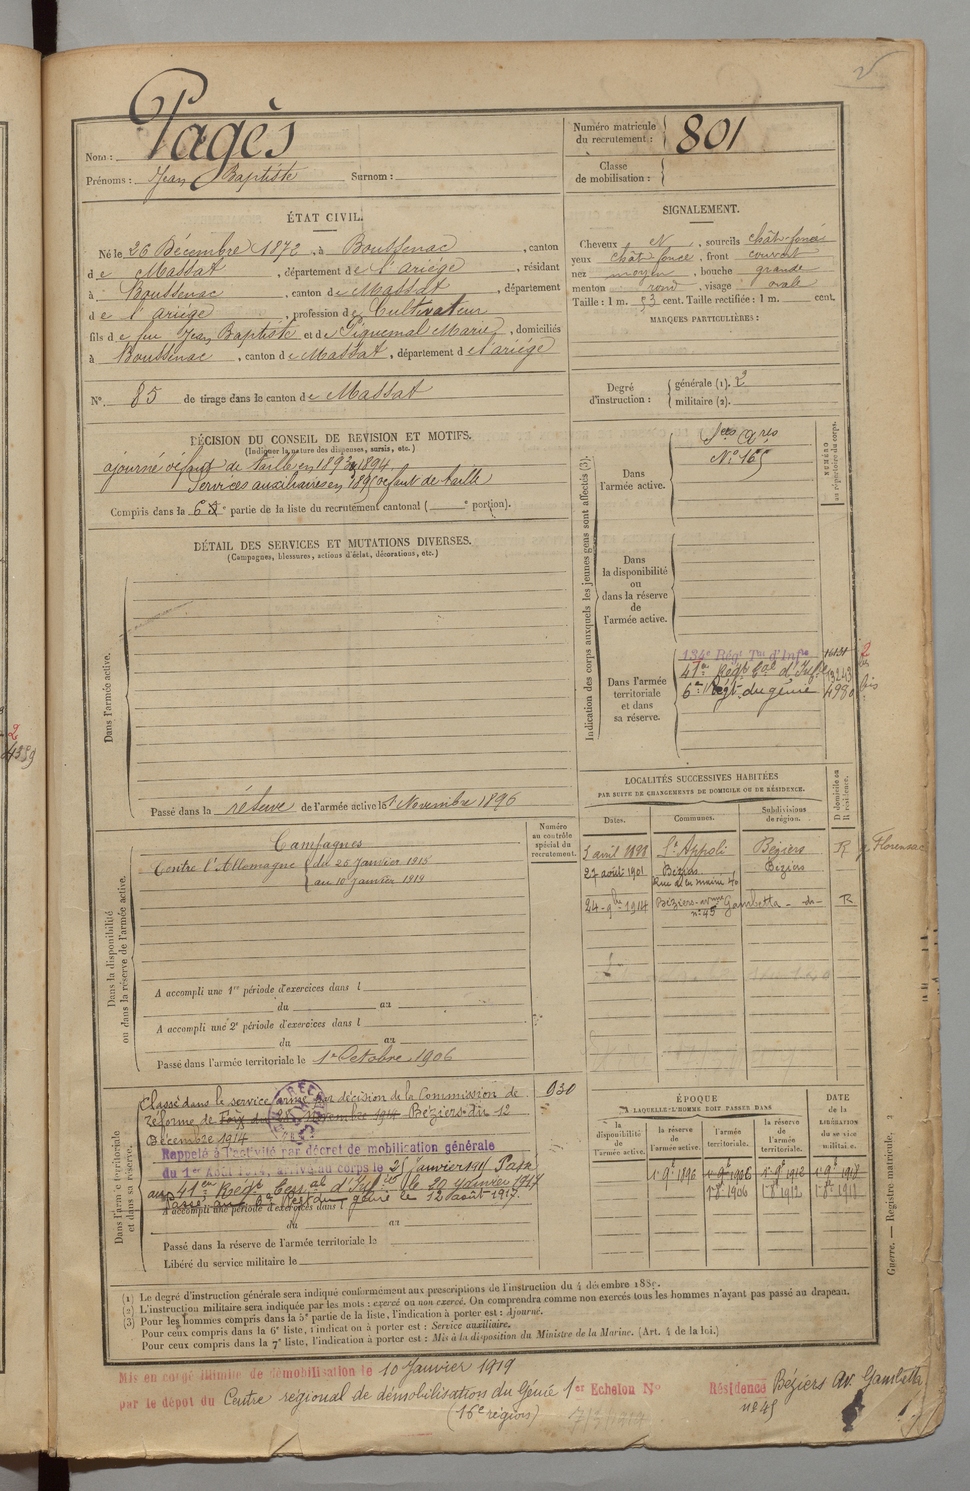 Pagès
Nom :
Prénoms : Jean Baptiste Surnom :
Numéro matricule du recrutement : 801
Classe de mobilisation :
ÉTAT CIVIL.
Né le 26 Décembre 1872, à Boussenac, canton
de Massat, département de l'ariége, résidant
à Boussenac, canton de Massat, département
de l'ariége, profession de Cultivateur
fils de feu Jean Baptiste et de Piquemal Marie, domiciliés
à Boussenac, canton de Massat, département de l'ariége
N° 85 de tirage dans le canton de Massat
SIGNALEMENT.
Cheveux N, sourcils chât-foncé
yeux chât-foncé, front couvert
nez moyen, bouche grande
menton rond, visage ovale
Taille : 1 m. 53 cent. Taille rectifiée : 1 m. cent.
MARQUES PARTICULIÈRES :
Degré d'instruction : générale (1). 2
militaire (2).
DÉCISION DU CONSEIL DE REVISION ET MOTIFS.
(Indiquer la nature des dispenses, sursis, etc.)
ajourné défaut de taille en 1893, 1894
Services auxiliaires en 1895 défaut de taille
Compris dans la 6e partie de la liste du recrutement cantonal ( e portion).
DÉTAIL DES SERVICES ET MUTATIONS DIVERSES.
(Campagnes, blessures, actions d'éclat, décorations, etc.)
Dans l'armée active.
Passé dans la réserve de l'armée active le 1 Novembre 1896
Indication des corps auxquels les jeunes gens sont affectés (3).
NUMÉRO au répertoire du corps.
Dans l'armée active.
N° 165
Dans la disponibilité ou dans la réserve de l'armée active.
Dans l'armée territoriale et dans sa réserve.
134e Régt Trial d'Infie 16131
41e Régt Cal d'Infie 13243
6e Régt du génie 4980 bis
LOCALITÉS SUCCESSIVES HABITÉES
PAR SUITE DE CHANGEMENTS DE DOMICILE OU DE RÉSIDENCE.
Dates. Communes. Subdivisions de région. D domicile ou R résidence.
Béziers R Florensac
27 août 1901 Béziers Béziers
Rue de la mairie 40
24 - 9bre 1914 Béziers - avenue Gambetta - do - R
n° 45
Dans la disponibilité ou dans la réserve de l'armée active.
Numéro au contrôle spécial du recrutement.
Campagnes
Contre l'Allemagne du 25 Janvier 1915
au 10 Janvier 1919
A accompli une 1re période d'exercices dans l
du au
A accompli une 2e période d'exercices dans l
du au
Passé dans l'armée territoriale le 1er Octobre 1906
Dans l'armée territoriale et dans sa réserve.
Classé dans le service armé par décision de la Commission de 930
réforme de Foix du novembre 1914 Béziers du 12
Décembre 1914
Rappelé à l'activité par décret de mobilisation générale
du 1er Août 1914, arrivé au corps le 25 janvier 1915 Passé
au 41e Régt Cal d'Infie le 20 Janvier 1917
Passé au 6e Régt du génie le 12 août 1917.
A accompli une période d'exercices dans l
du au
Passé dans la réserve de l'armée territoriale le
Libéré du service militaire le
ÉPOQUE
A LAQUELLE L'HOMME DOIT PASSER DANS
DATE de la LIBÉRATION du service militaire.
la disponibilité de l'armée active. la réserve de l'armée active. l'armée territoriale. la réserve de l'armée territoriale.
1er 9e 1896 1er 9e 1906 1er 9e 1912 1er 9e 1918
1er 8e 1906 1er 8e 1912
Guerre. — Registre matricule.
(1) Le degré d'instruction générale sera indiqué conformément aux prescriptions de l'instruction du 4 décembre 1889.
(2) L'instruction militaire sera indiquée par les mots : exercé ou non exercé. On comprendra comme non exercés tous les hommes n'ayant pas passé au drapeau.
(3) Pour les hommes compris dans la 5e partie de la liste, l'indication à porter est : Ajourné.
Pour ceux compris dans la 6e liste, l'indication à porter est : Service auxiliaire.
Pour ceux compris dans la 7e liste, l'indication à porter est : Mis à la disposition du Ministre de la Marine. (Art. 4 de la loi.)
Mis en congé illimité de démobilisation le 10 Janvier 1919
par le dépôt du Centre régional de démobilisation du Génie 1er Echelon N° Résidence Béziers Av. Gambetta
(16e région) n° 45